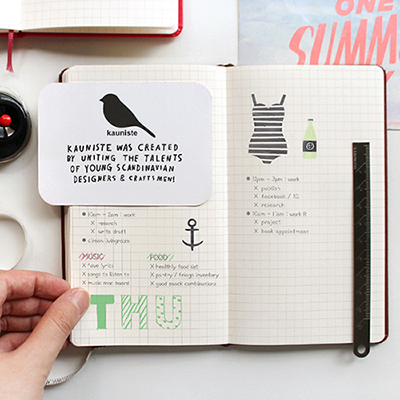 ONE
SUMM
kauniste
KAUNISTE WAS CREATED
BY UNITING THE TALENTS
OF YOUNG SCANDINAVIAN
DESIGNERS & CRAFTSMEN!
10am - 2am | work
x research
x write draft
MUSIC
x love lyric
x songs to listen to
x music mood board
FOOD
x healthy food list
x pantry / fridge inventory
x good snack combinations
THU
12pm - 3pm | work
x publish
x facebook / IG
x research
10am - 11am | work
x project
x book appointment